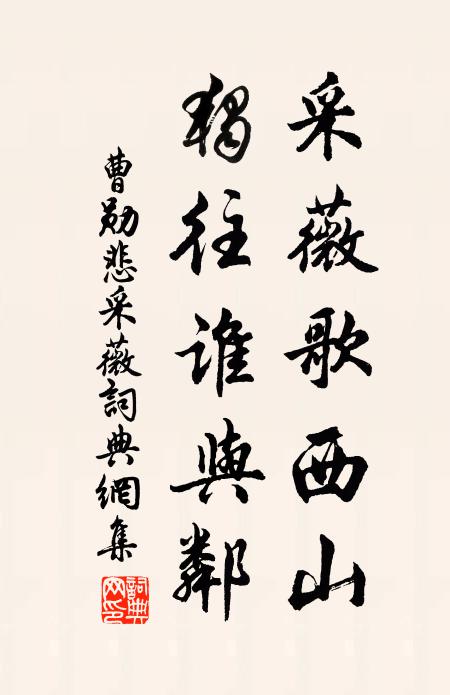 采薇歌西山
獨往誰與鄰
曹勛悲采薇詞典網集
詞典
网印